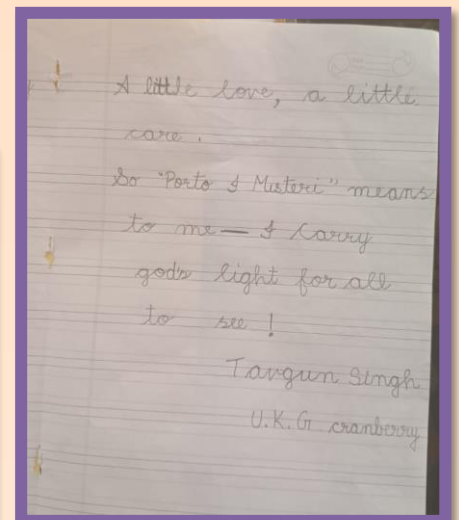 A little love, a little
care .
So "Porto I Misteri" means
to me — I carry
god's light for all
to see !
Tavgun Singh
U.K.G cranberry